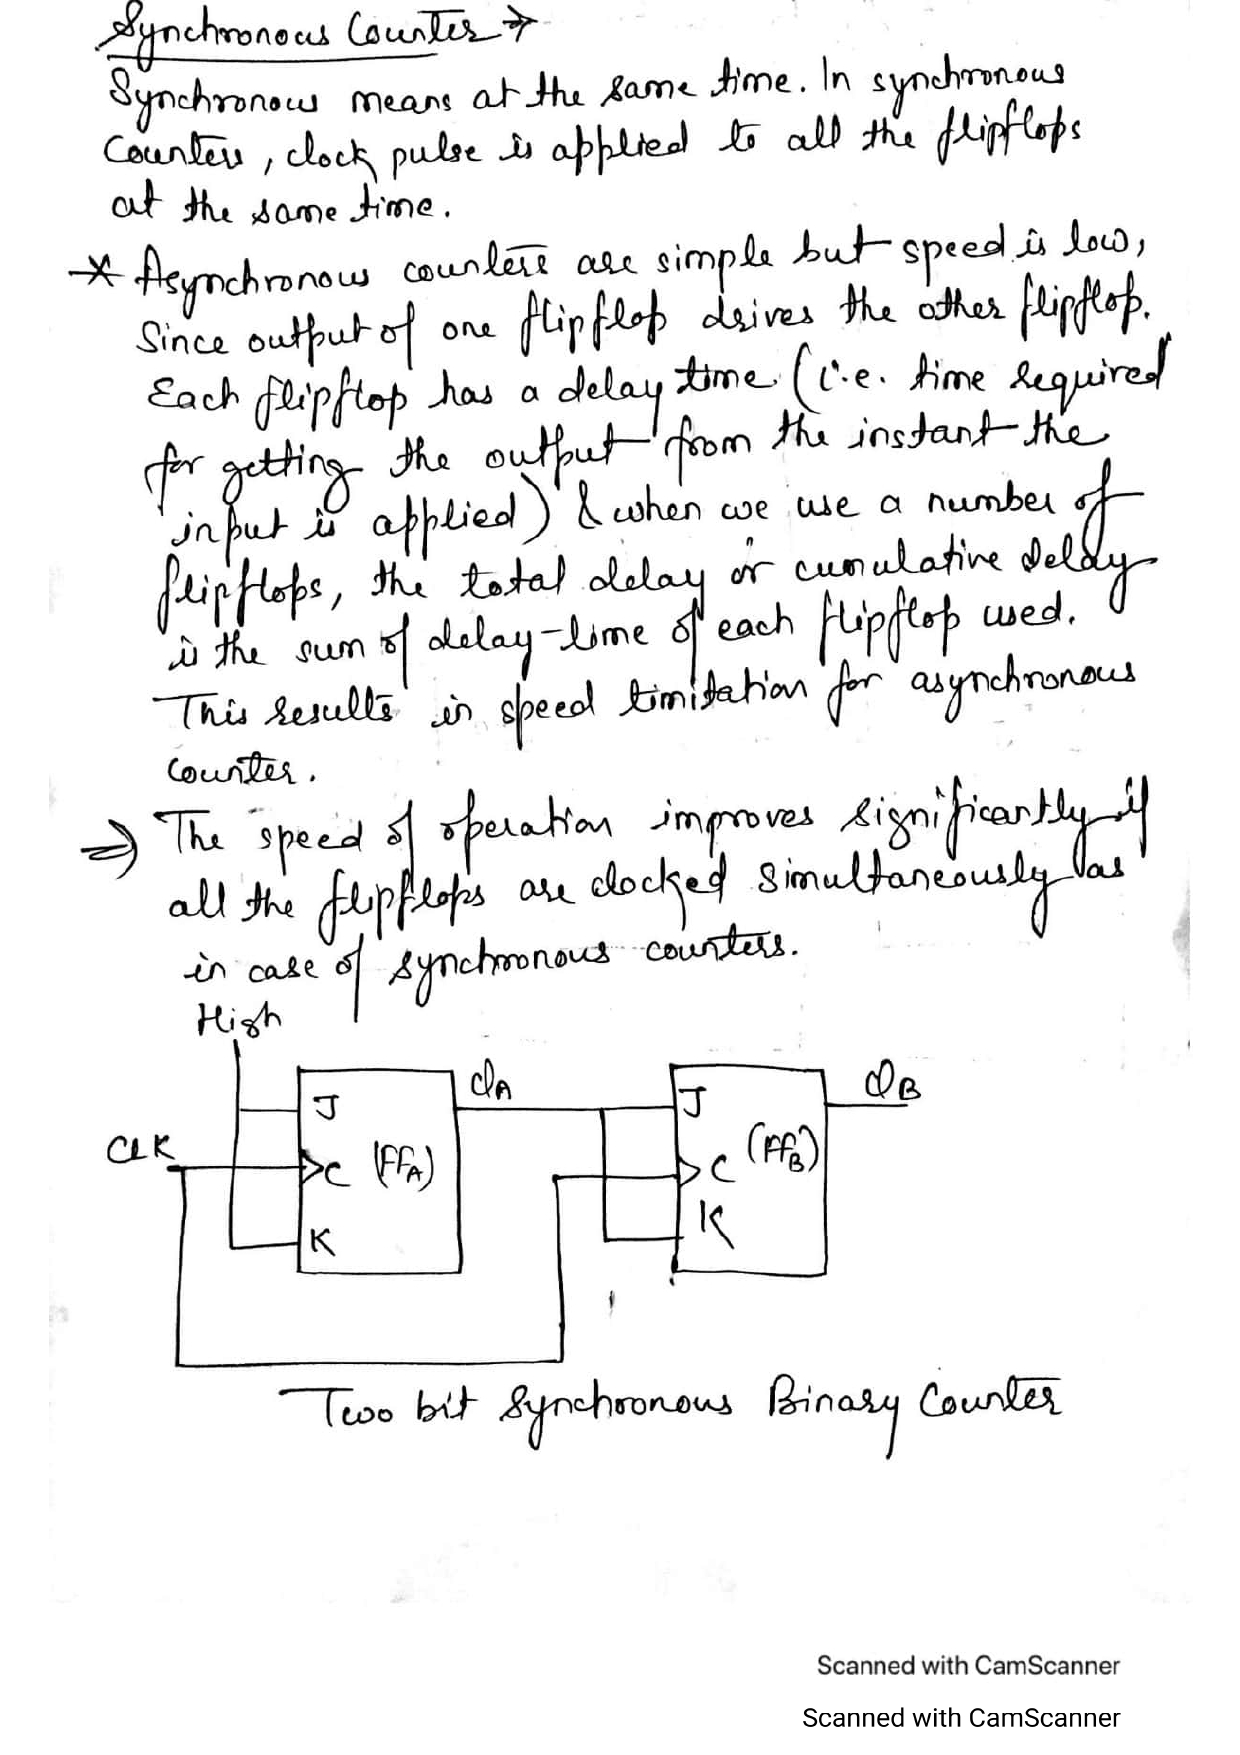 Synchronous Counter →
Synchronous means at the same time. In synchronous
Counters, clock pulse is applied to all the flipflops
at the same time.
* Asynchronous counters are simple but speed is low,
Since output of one flipflop drives the other flipflop.
Each flipflop has a delay time (i.e. time required
for getting the output from the instant the
input is applied) & when we use a number of
flipflops, the total delay or cumulative delay
is the sum of delay-time of each flipflop used.
This results in speed limitation for asynchronous
Counter.
⇒ The speed of operation improves significantly if
all the flipflops are clocked simultaneously as
in case of synchronous counters.
High
QA QB
J J
CLK C (FFA) C (FFB)
K K
Two bit Synchronous Binary Counter
Scanned with CamScanner
Scanned with CamScanner